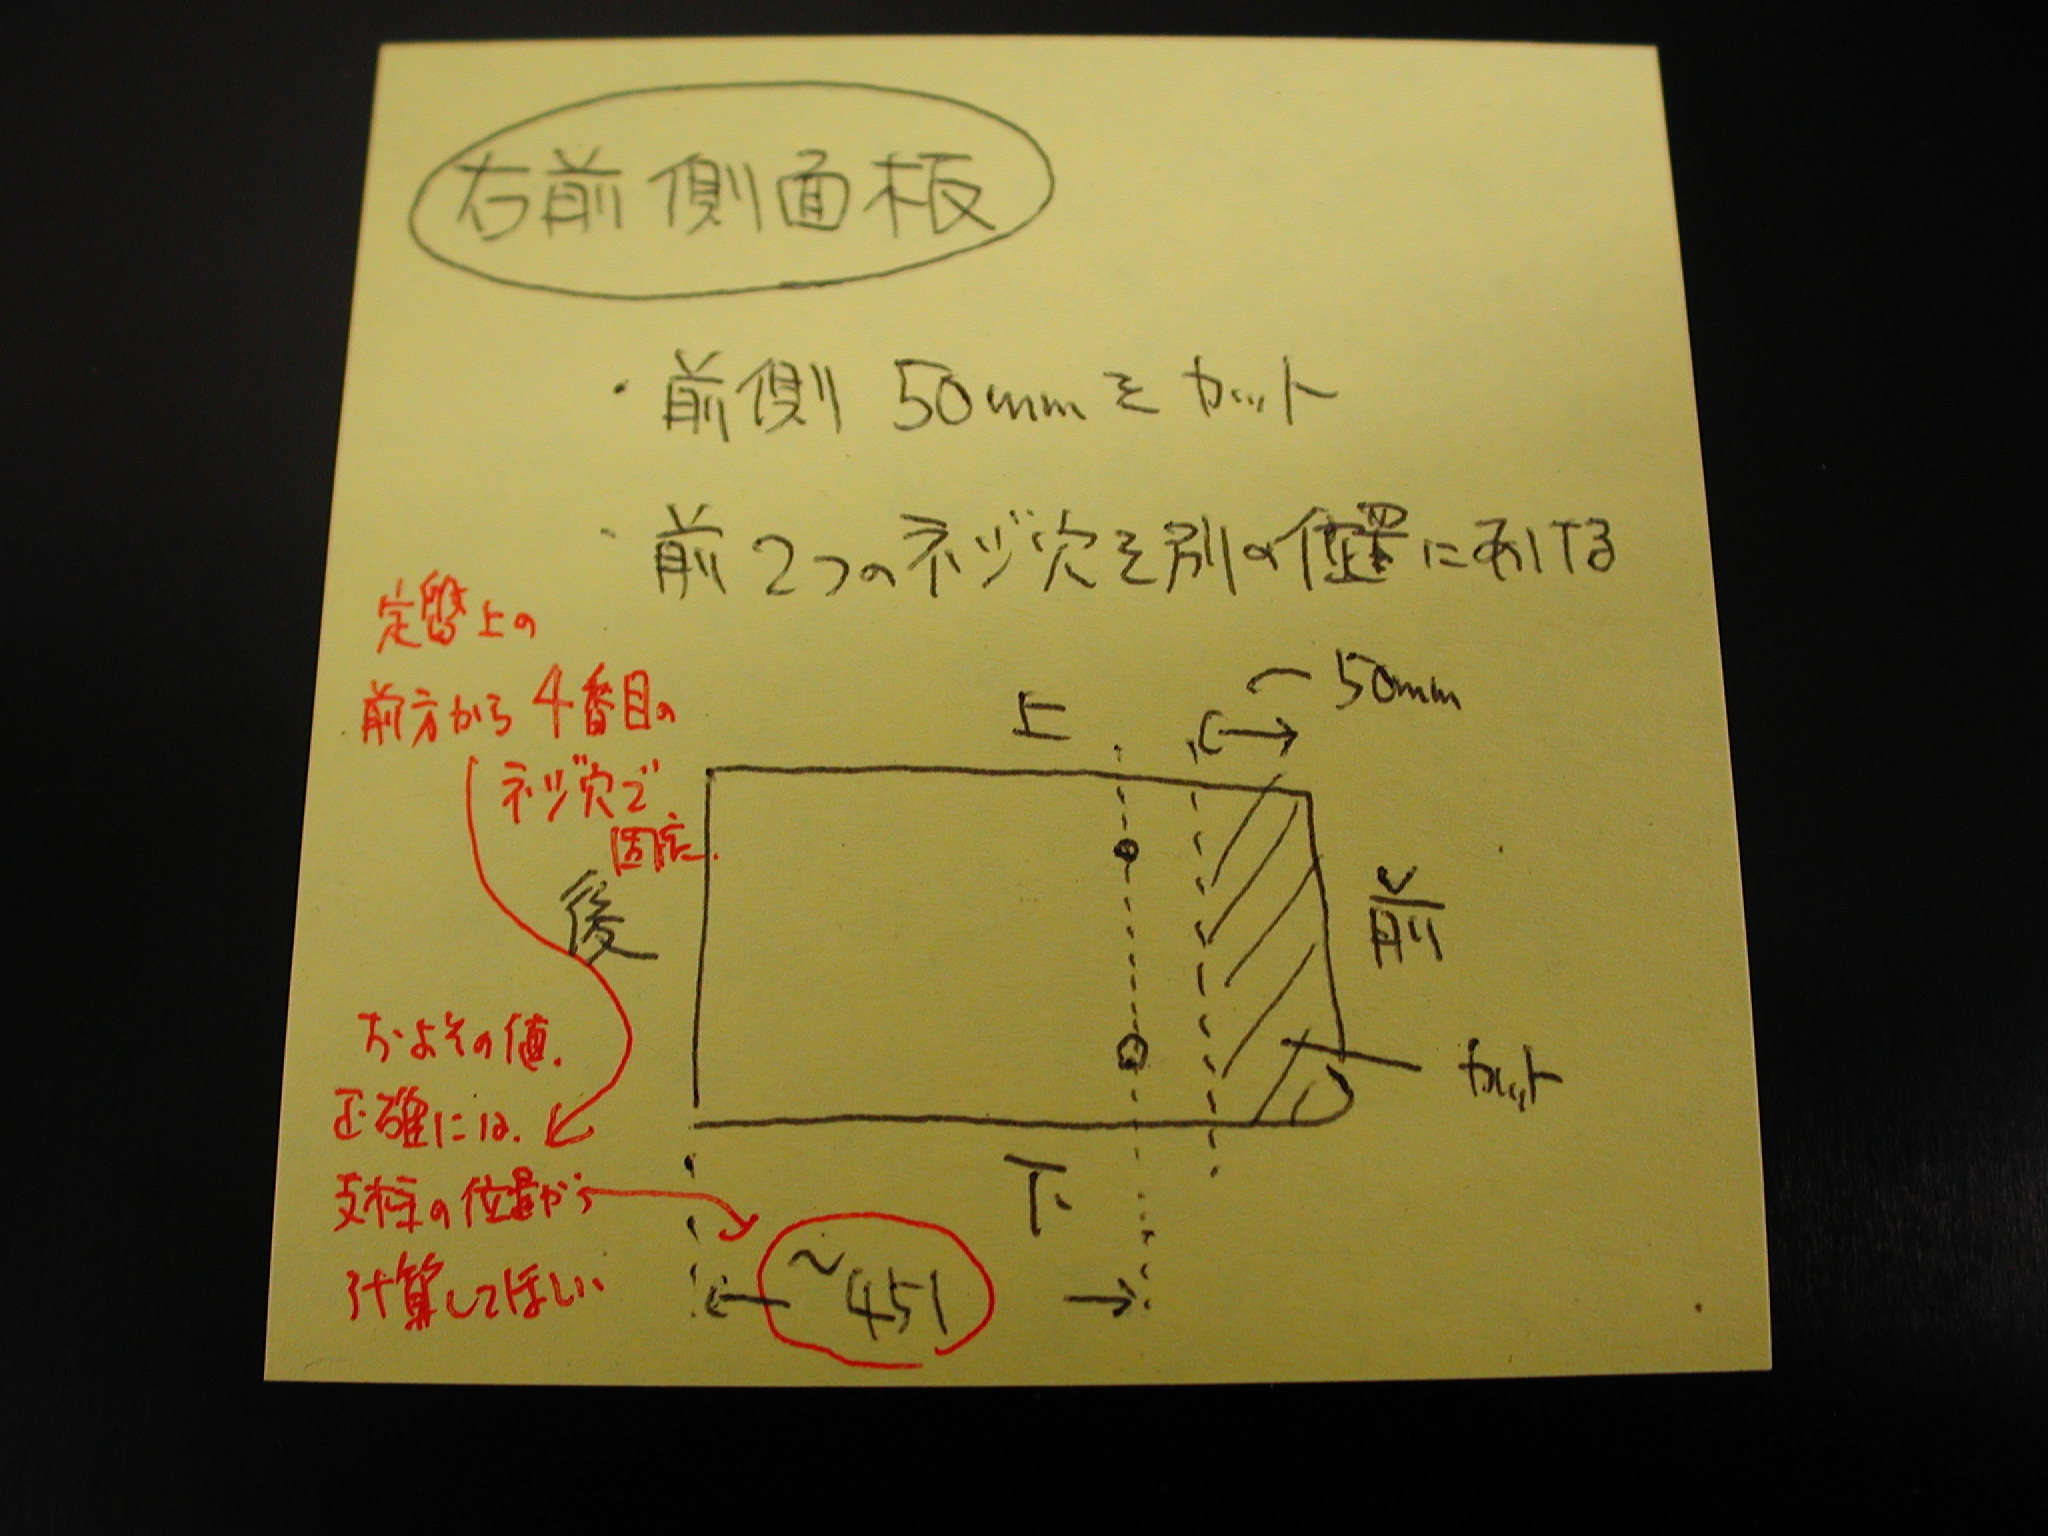 右前側面板
・前側 50mmをカット
・前2つのネジ穴を別の位置にあける
定盤上の
前方から4番目の
ネジ穴で
固定.
50mm
上
後
前
カット
下
~451
およその値.
正確には.
支柱の位置から
計算してほしい